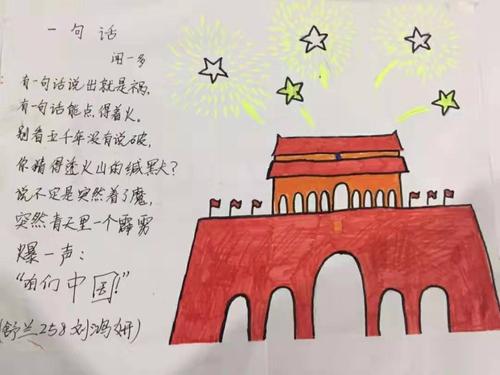 一句话
闻一多
有一句话说出就是祸,
有一句话能点得着火。
别看五千年没有说破,
你猜得透火山的缄默?
说不定是突然着了魔,
突然青天里一个霹雳
爆一声:
“咱们中国!”
(舒兰258刘鸿妍)